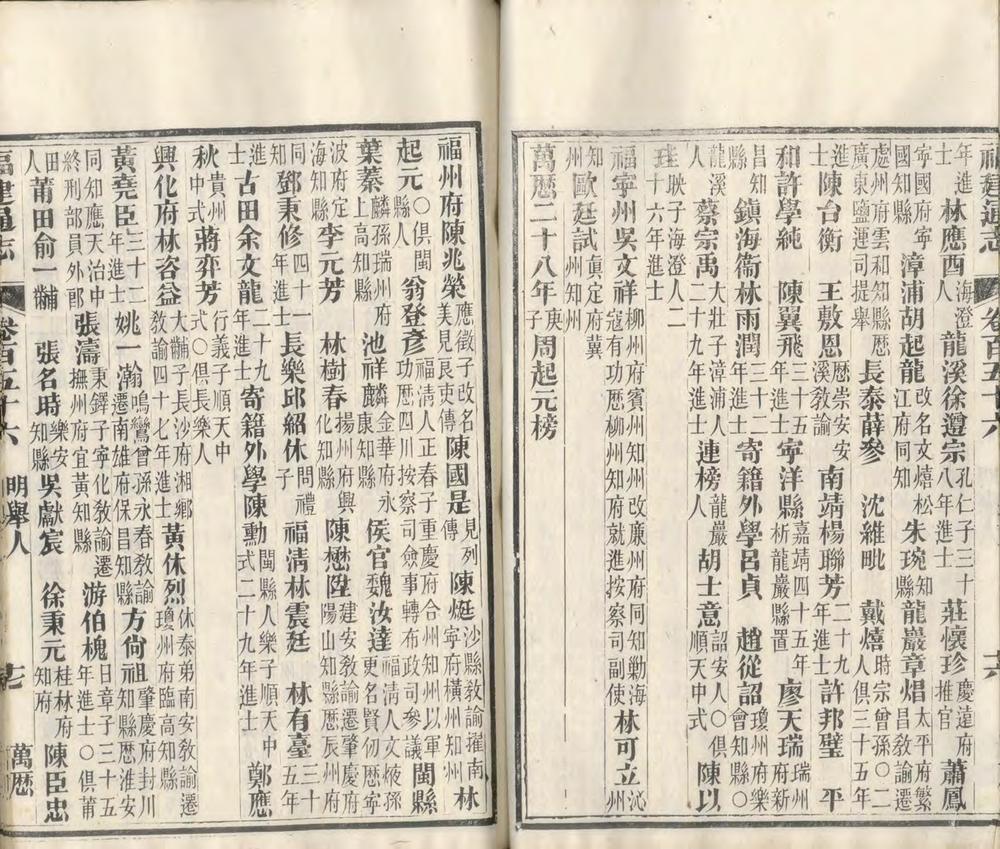 福建通志 卷百五十六 六
年進士 林應酉海澄人 龍溪徐遵宗孔仁子三十八年進士 莊懷珍慶遠府推官 蕭鳳
寧國府寧國知縣 漳浦胡起龍改名文熺松江府同知 朱琬知縣 龍巖章焻太平府繁昌教諭遷
處州府雲和知縣歷廣東鹽運司提舉 長泰薛參 沈維毗 戴熺時宗曾孫〇二人俱三十五年
進士 陳台衡 王敷恩歷崇安安溪教諭 南靖楊聯芳二十九年進士 許邦璧 平
和許學純 陳翼飛三十五年進士 寧洋縣嘉靖四十五年析龍巖縣置 廖天瑞瑞州府新
昌知縣 鎮海衞林雨潤三十二年進士 寄籍外學呂貞 趙從詔瓊州府樂會知縣〇
龍溪人 蔡宗禹大壯子漳浦人二十九年進士 連榜龍巖人 胡士意詔安人〇俱順天中式 陳以
瑝映子海澄人二十六年進士
福寧州吳文祥柳州府賓州知州改廉州府同知勦海寇有功歷柳州知府就進按察司副使 林可立沁州
知州 歐廷試眞定府冀州知州
萬歷二十八年庚子周起元榜
福州府陳兆榮應徵子改名美見艮吏傳 陳國是見列傳 陳烶沙縣教諭擢南寧府橫州知州 林
起元〇俱閩縣人 翁登彥福清人正春子重慶府合州知州以軍功歷四川按察司僉事轉布政司參議 閩縣
葉蓁麟孫瑞州府上高知縣 池祥麟金華府永康知縣 侯官魏汝達福清人文㷡孫更名賢仞歷寧
波府定海知縣 李元芳 林樹春揚州府興化知縣 陳懋陞建安教諭遷肇慶府陽山知縣歷辰州府
同知 鄧秉修四十一年進士 長樂邱紹休問禮子 福清林震廷 林有臺三十五年
進士 古田余文龍二十九年進士 寄籍外學陳勳閩縣人樂子順天中式二十九年進士 鄭應
秋貴州中式 蔣弈芳行義子順天中式〇俱長樂人
興化府林咨益大黼子長沙府湘鄉教諭四十七年進士 黃休烈休泰弟南安教諭遷瓊州府臨高知縣
黃堯臣三十二年進士 姚一瀚鳴鸞曾孫永春教諭遷南雄府保昌知縣 方尙祖肇慶府封川知縣歷淮安
同知應天治中終刑部員外郎 張濤東鐸子寧化教諭遷撫州府宜黃知縣 游伯槐日章子三十五年進士〇俱莆
田人 莆田俞一黼 張名時樂安知縣 吳獻宸 徐秉元桂林府知府 陳臣忠
福建通志 卷百五十六 明舉人 七 萬歷